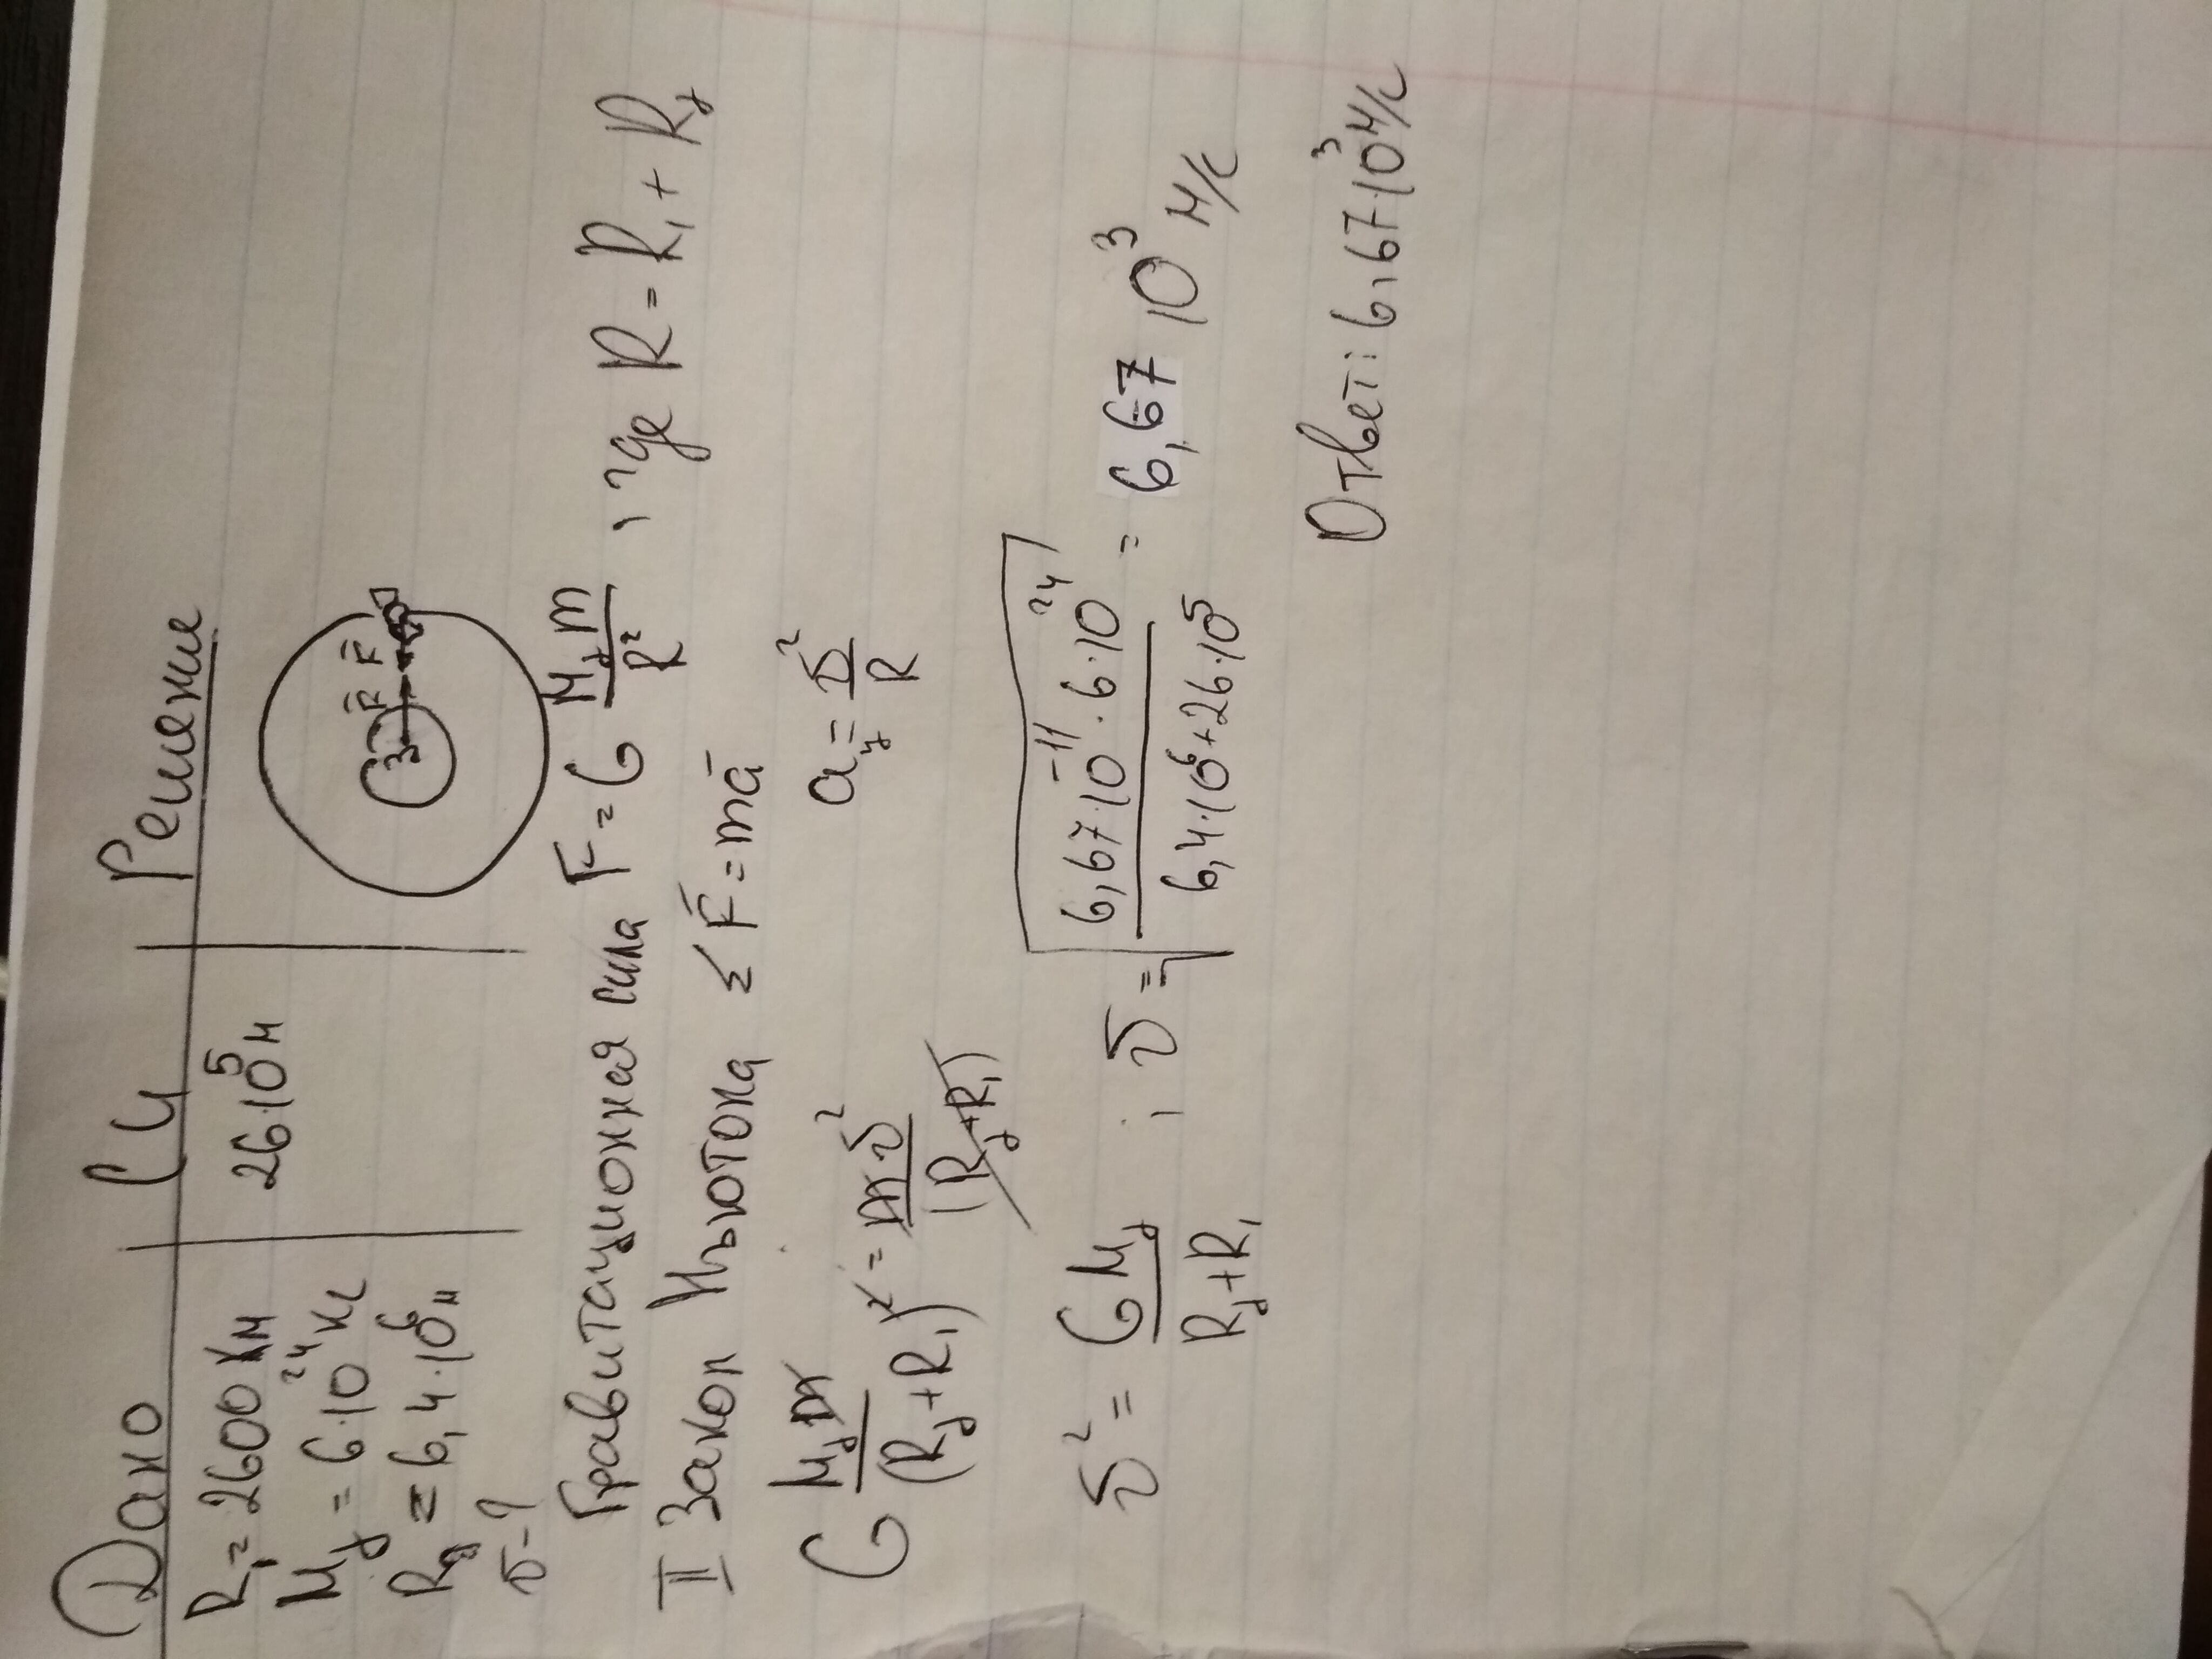 Дано Си Решение
R₁ = 2600 км 26·10⁵ м
Mз = 6·10²⁴ кг
Rз = 6,4·10⁶ м
υ - ?
З R̄ F̄
Гравитационная сила F = G Mзm/R² , где R = R₁ + Rз
II Закон Ньютона Σ F̄ = mā
G Mзm/(Rз+R₁)² = mυ²/(Rз+R₁) aц = υ²/R
υ² = GMз/Rз+R₁ ; υ = √(6,67·10⁻¹¹·6·10²⁴/6,4·10⁶+26·10⁵) = 6,67 10³ м/с
Ответ: 6,67·10³ м/с